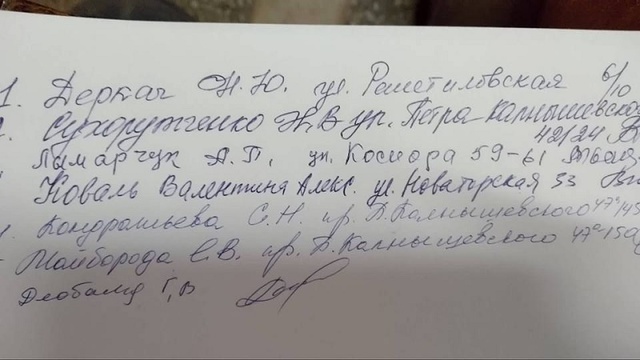 1. Деркач Н.Ю. ул. Решетиловская 6/10
Сухорутченко Ж.В ул. Петра Калнышевско
42/24
Ламарчук А.П. ул. Космора 59-61
Коваль Валентина Алекс. ул. Новаторская 33
Кондратьева С.Н. пр. П.Калнышевского 47
Момборода Е.В. пр. П.Калнышевского 47
Г,В